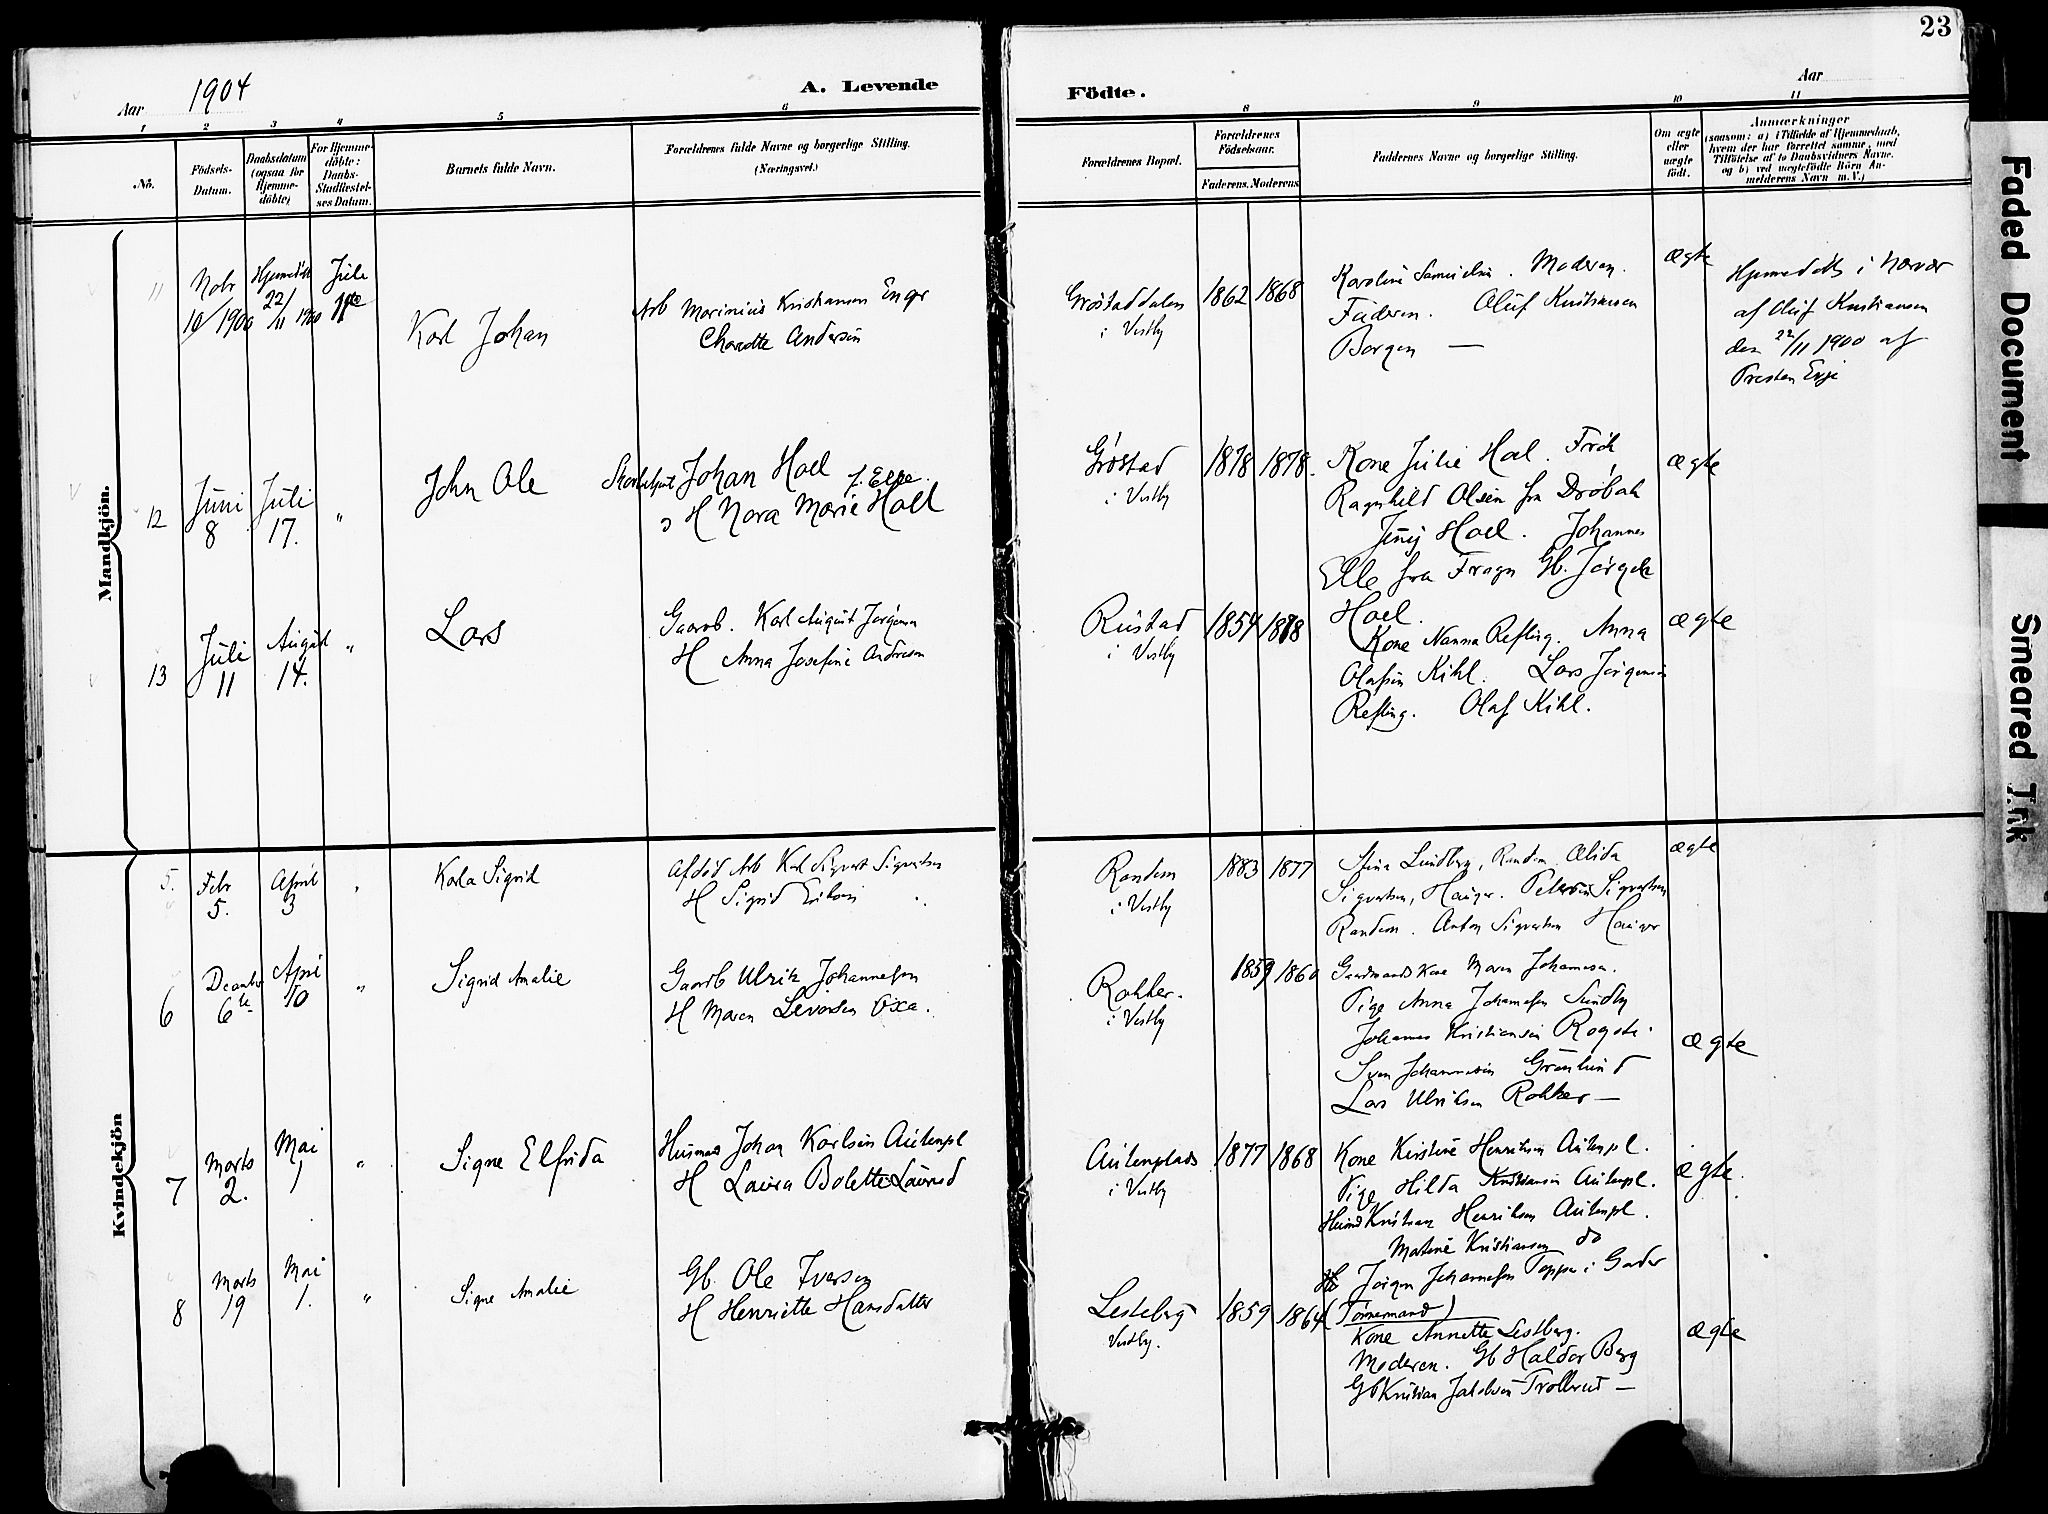 23
Aar 1904
A. Levende
Födte.
Aar
1 2 3 4 5 6 8 9 10 11
No.
Födsels-
Datum.
Daabsdatum
(ogsaa for
Hjemme-
döbte)
For Hjemme-
döbte:
Daabs-
Stadfæstel-
ses Datum.
Barnets fulde Navn.
Forældrenes fulde Navne og borgerlige Stilling.
(Næringsvei.)
Forældrenes Bopæl.
Forældrenes
Födselsaar.
Faderens. Moderens
Faddernes Navne og borgerlige Stilling.
Om ægte
eller
uægte
födt.
Anmærkninger
(saasom: a) i Tilfælde af Hjemmedaab,
hvem der har forrettet samme, med
Tilföielse af to Daabsvidners Navne.
og b) ved uægtefödte Börn An-
melderens Navn m. V.)
Mandkjön.
11
Nobr
10/1900
22/11 1900
Karl Johan
Arb Marinius Kristiansen Enger
Andersen
i Vestby
1862 1868
Moderen.
Faderen. Oluf Kristiansen
Borgen —
ægte
i Navær
af Oluf Kristiansen
den 22/11 1900 af
Presten
12
Juni
8
Juli
17.
"
John Ole
Johan Hoel
H Nora Marie Hoel
Grøstad
i Vestby
1878 1878.
Kone Julie Hoel. Frøk
Ragnhild Olsen fra Drøbak
Hoel. Johannes
Elle fra Frogn Gb. Jørgen
Hoel.
ægte
13
Juli
11
August
14.
"
Lars
Gaarb. Karl August Jørgensen
H Anna Josefine Andersen
Rustad
i Vestby
1854 1878
Kone Nanna Refling. Anna
Olafsen Kihl. Lars Jørgensen
Refling. Olaf Kihl.
ægte
Kvindekjön
5.
Febr
5.
April
3
"
Karla Sigrid
Afdød Arb Karl Sigvart Sigvartsen
H Sigrid Eriksen
Randem
i Vestby
1883 1877
Stina Lundberg, Randem Alida
Sigvartsen, Hauger. Sigvartsen
Randem. Anton Sigvartsen Hauger
ægte
6
6te
April
10
"
Sigrid Amalie
Gaarb Ulrik Johannesen
H Maren Levorsen Oxa.
Rokker.
i Vestby
1859 1860
Gaardmands Kone Maren Johannesen.
Pige Anna Johannesen Sundby
Johannes Kristiansen
Sven Johannesen Grønlund
Lars Ulriksen Rokker —
ægte
7
Marts
2.
Mai
1
"
Signe Elfrida
Husmand Johan Karlsen Autenpl
H Laura Bolette
Autenplads
i Vestby
1877 1868
Kone Kirstine Henriksen Autenpl.
Pige Hilda Kristiansen Autenpl.
Kristian Henriksen Autenpl.
Martine Kristiansen do
Jørgen Johannesen Toppe i
(Tømmermand)
ægte.
8
Marts
19
Mai
1.
"
Signe Amalie
Gb. Ole Iversen
H Henriette Hansdatter
Lesteberg
Vestby.
1859 1864
Kone Annette Lestberg.
Moderen. Gb Haldor Berg
Gb Kristian Jakobsen Trollerud —
ægte
Faded Document
Smeared Ink